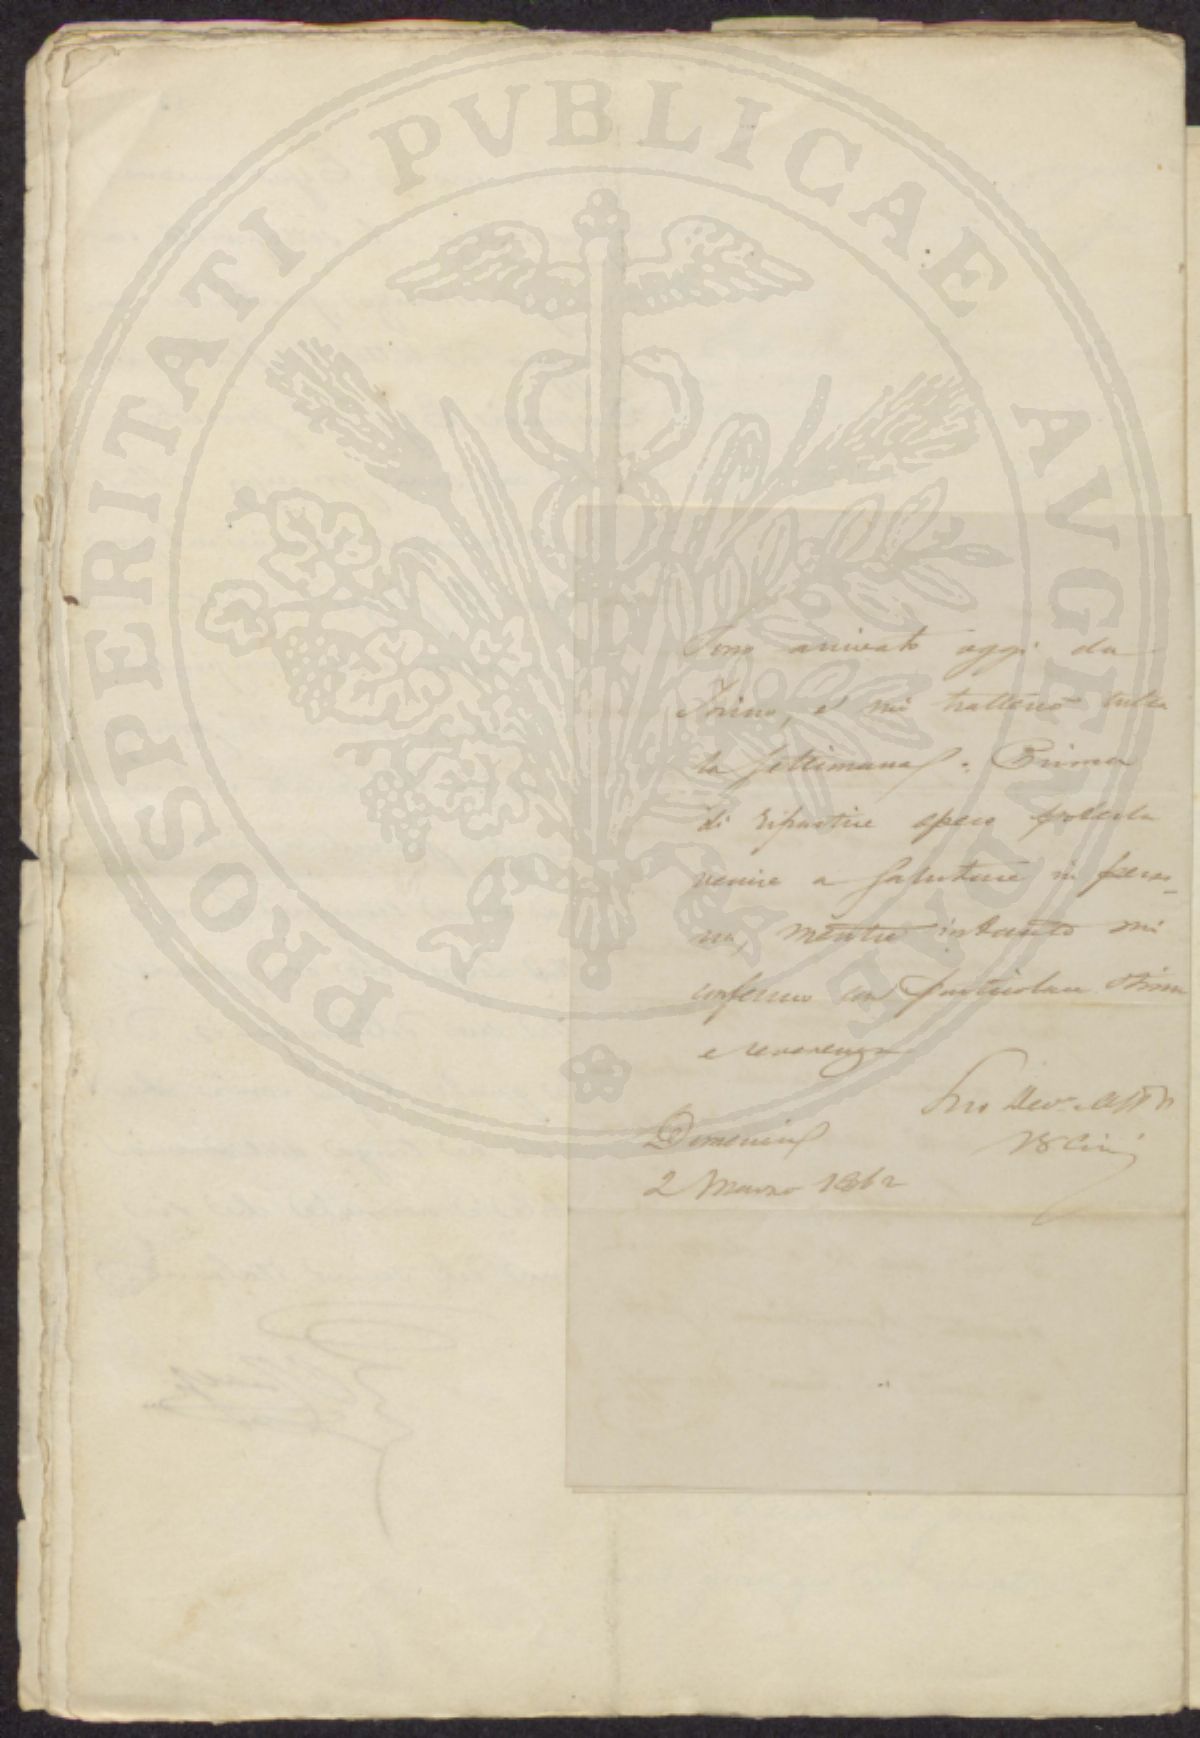 PROSPERITATI PVBLICAE AVGENDAE
Sono arrivato oggi da
Torino, e mi tratterrò tutta
la settimana. Prima
di ripartire spero poterla
venire a salutare in perso=
na, mentre intanto mi
confermo con particolare stima
e reverenza
Suo Dev.
Domenica
2 Marzo 1862